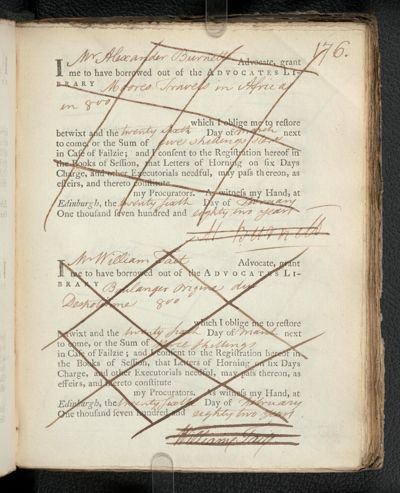 176.
I Mr Alexander Burnett Advocate, grant
me to have borrowed out of the ADVOCATES LI-
BRARY Moores Travels in Africa
in 8vo
which I oblige me to restore
betwixt and the twenty sixth Day of March next
to come, or the Sum of five shillings Sterl
in Case of Failzie; and I consent to the Registration hereof in
the Books of Session, that Letters of Horning on six Days
Charge, and other Executorials needful, may pass thereon, as
effeirs, and thereto constitute
my Procurators. As witness my Hand, at
Edinburgh, the twenty sixth Day of February
One thousand seven hundred and eighty two years
Al Burnett
I Mr William Tait Advocate, grant
me to have borrowed out of the ADVOCATES LI-
BRARY Boulanger Origine du
Despotisme 8vo
which I oblige me to restore
betwixt and the twenty sixth Day of March next
to come, or the Sum of three shillings
in Case of Failzie; and I consent to the Registration hereof in
the Books of Session, that Letters of Horning on six Days
Charge, and other Executorials needful, may pass thereon, as
effeirs, and thereto constitute
my Procurators. As witness my Hand, at
Edinburgh, the twenty sixth Day of February
One thousand seven hundred and eighty two years
William Tait